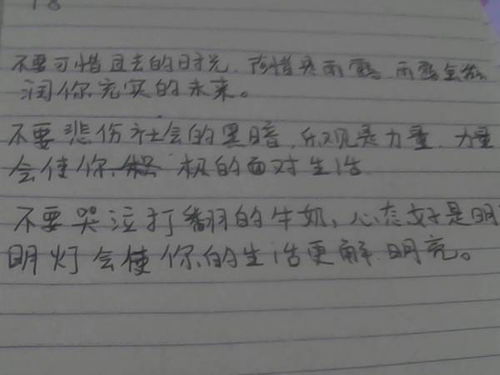 18
不要可惜过去的时光,珍惜是雨露,雨露会滋
润你充实的未来。
不要悲伤社会的黑暗,乐观是力量,力量
会使你 积极的面对生活
不要哭泣打翻的牛奶,心态好是明
明灯会使你的生活更解明亮。